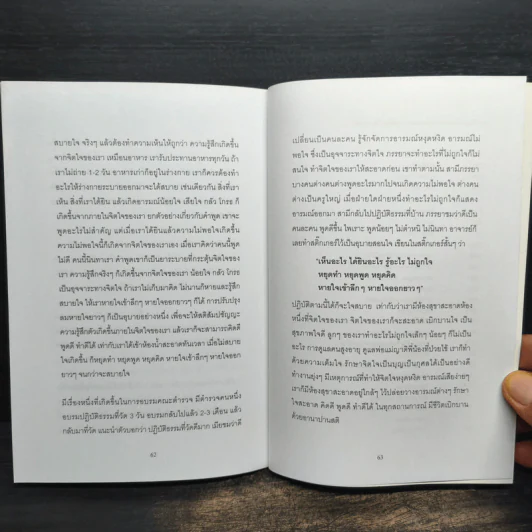 สบายใจ จริงๆ แล้วต้องทำความเห็นให้ถูกว่า ความรู้สึกเกิดขึ้น
จากจิตใจของเรา เหมือนอาหาร เรารับประทานอาหารทุกวัน ถ้า
เราไม่ถ่าย 1-2 วัน อาหารเก่าก็อยู่ในร่างกาย เราก็ควรต้องทำ
อะไรให้ร่างกายระบายออกมาจะได้สบาย เช่นเดียวกัน สิ่งที่เรา
เห็น สิ่งที่เราได้ยิน แล้วเกิดอารมณ์น้อยใจ เสียใจ กลัว โกรธ ก็
เกิดขึ้นจากภายในจิตใจของเรา ยกตัวอย่างเกี่ยวกับคำพูด เขาจะ
พูดอะไรไม่สำคัญ แต่เมื่อเราได้ยินแล้วความไม่พอใจเกิดขึ้น
ความไม่พอใจนี้ก็เกิดจากจิตใจของเราเอง เมื่อเราคิดว่าคนนี้พูด
ไม่ดี คนนี้นินทาเรา คำพูดเขาก็เป็นยาระบายที่กระตุ้นจิตใจของ
เรา ความรู้สึกจริงๆ ก็เกิดขึ้นจากจิตใจของเรา น้อยใจ กลัว โกรธ
เป็นอุจจาระทางจิตใจ ถ้าเราไม่เก็บมาคิด ไม่นานก็หายและรู้สึก
สบายใจ ให้เราหายใจเข้าลึกๆ หายใจออกยาวๆ ก็ได้ การปรับปรุง
ลมหายใจยาวๆ ก็เป็นอุบายอย่างหนึ่ง เพื่อจะให้สติสัมปชัญญะ
ความรู้สึกตัวเกิดขึ้นภายในจิตใจของเรา แล้วเราก็จะสามารถคิดดี
พูดดี ทำดีได้ เท่ากับเข้าห้องน้ำสะอาดทันเวลา เมื่อไม่สบาย
ใจเกิดขึ้น ก็หยุดทำ หยุดพูด หยุดคิด หายใจเข้าลึกๆ หายใจออก
ยาวๆ จนกว่าจะสบายใจ
มีเรื่องหนึ่งที่เกิดขึ้นในการอบรมคณะตำรวจ มีตำรวจคนหนึ่ง
อบรมปฏิบัติธรรมที่วัด 3 วัน อบรมกลับไปแล้ว 2-3 เดือน แล้ว
กลับมาที่วัด แนะนำตัวบอกว่า ปฏิบัติธรรมที่วัดดีมาก เมียชมว่าดี
62
เปลี่ยนเป็นคนละคน รู้จักจัดการอารมณ์หงุดหงิด อารมณ์ไม่
พอใจ ซึ่งเป็นอุจจาระทางจิตใจ ภรรยาจะทำอะไรที่ไม่ถูกใจก็ไม่
สนใจ ทำจิตใจของเราให้สะอาดก่อน เขาทำตามนั้น สามีภรรยา
บางคนต่างคนต่างพูดอะไรมากไปจนเกิดความไม่พอใจ ต่างคน
ต่างเป็นครูใหญ่ เมื่อฝ่ายใดฝ่ายหนึ่งทำอะไรไม่ถูกใจก็แสดง
อารมณ์ออกมา สามีกลับไปปฏิบัติธรรมที่บ้าน ภรรยาชมว่าดีเป็น
คนละคน พูดดีขึ้น ไพเราะ พูดน้อยๆ ไม่ตำหนิ ไม่นินทา อาจารย์ก็
เลยทำสติ๊กเกอร์ไว้เป็นอุบายสอนใจ เขียนในสติ๊กเกอร์สั้นๆ ว่า
"เห็นอะไร ได้ยินอะไร รู้อะไร ไม่ถูกใจ
หยุดทำ หยุดพูด หยุดคิด
หายใจเข้าลึก ๆ หายใจออกยาว ๆ"
ปฏิบัติตามนี้ได้ก็จะใจสบาย เท่ากับว่าเรามีห้องสุขาสะอาดห้อง
หนึ่งที่จิตใจของเรา จิตใจของเราก็จะสะอาด เบิกบานใจ เป็น
สุขภาพใจดี ลูกๆ ของเราทำอะไรไม่ถูกใจเล็กๆ น้อยๆ ก็ไม่เป็น
อะไร การดูแลคนสูงอายุ ดูแลพ่อแม่ญาติพี่น้องที่ป่วยไข้ เราก็ทำ
ด้วยความเต็มใจ รักษาจิตใจเป็นบุญเป็นกุศลได้เป็นอย่างดี
ทำงานยุ่งๆ มีเหตุการณ์ที่ทำให้จิตใจหงุดหงิด อารมณ์เสียง่ายๆ
เราก็มีห้องสุขาสะอาดอยู่ใกล้ๆ ไว้ปล่อยวางอารมณ์ต่างๆ รักษา
ใจสะอาด คิดดี พูดดี ทำดีได้ ในทุกสถานการณ์ มีชีวิตเบิกบาน
ด้วยอานาปานสติ
63